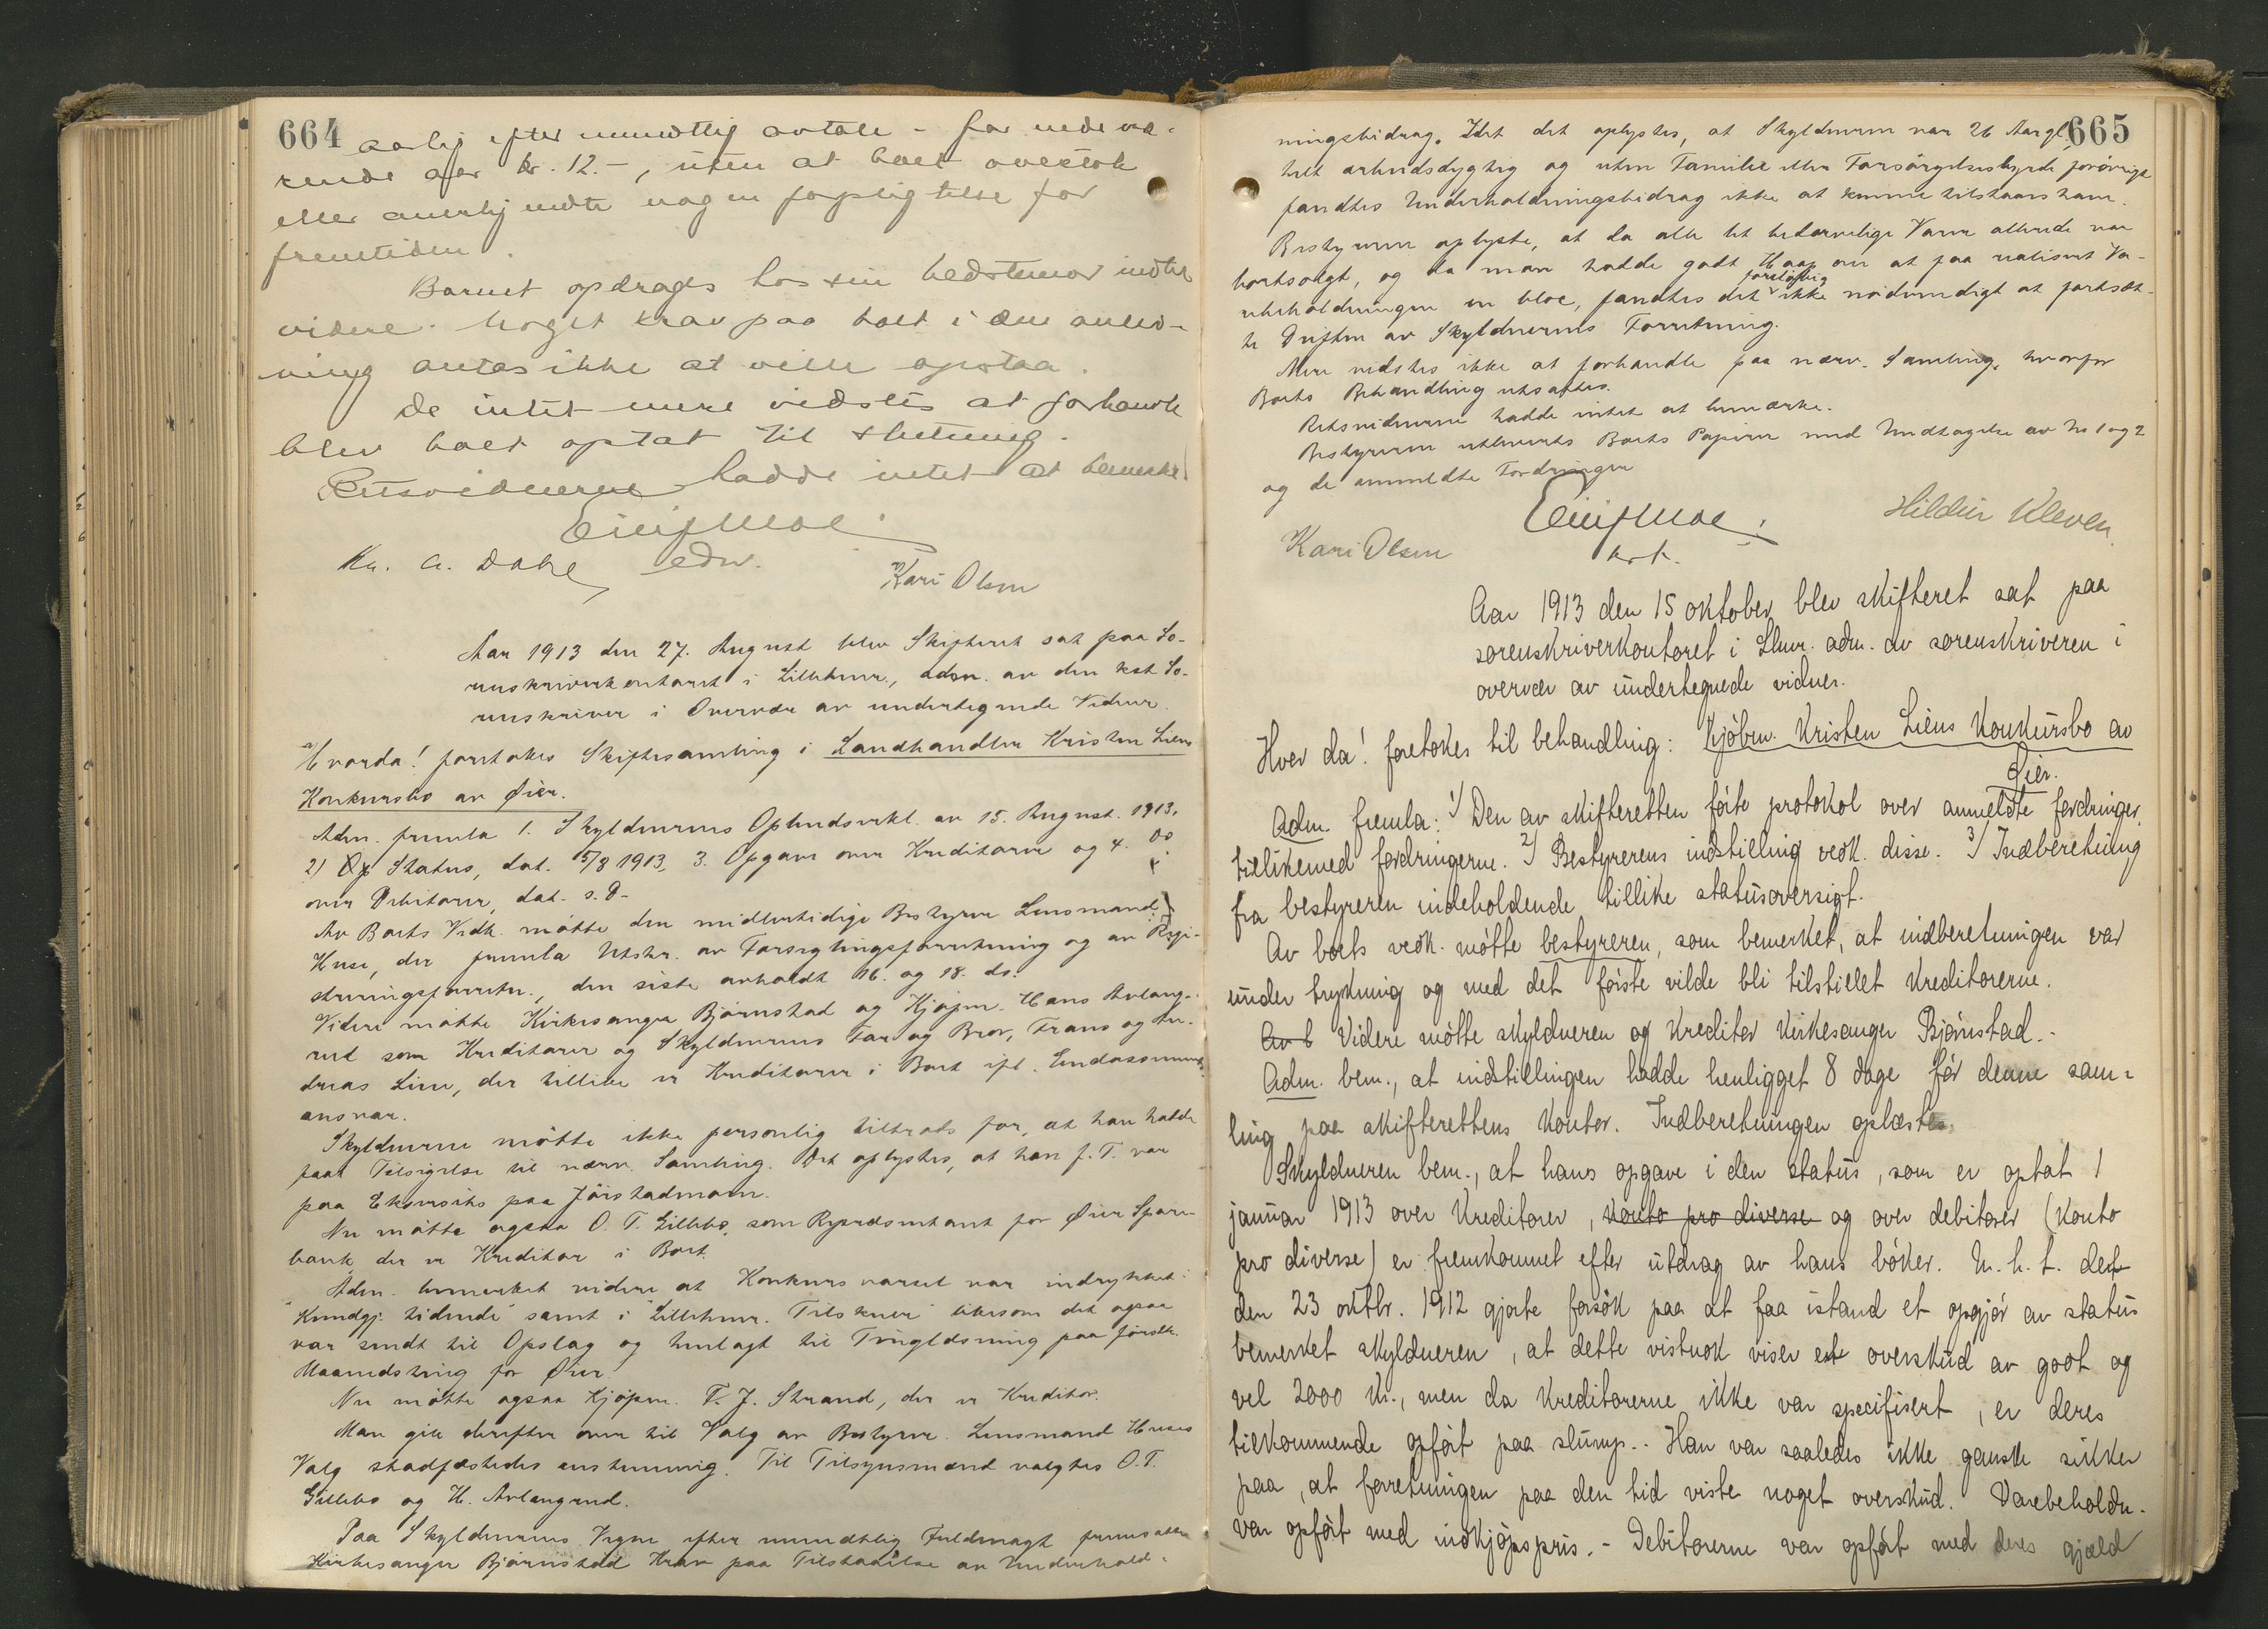 664
aarlig efter mundtlig avtale - for nedevæ-
rende aar kr. 12.-, uten at boet overtok
eller anerkjendte nogen forpligtelse for
fremtiden.
Barnet opdrages hos sin bedstemor indtil
videre. Noget krav paa boet i den anled-
ning antas ikke at ville opstaa.
Da intet mere vidstes at forhandle
blev boet optat til slutning.
Retsvidnerne hadde intet at bemerke
Einf Moe
Kr. A. Dahl edv. Kari Olsen
Aar 1913 den 27. August blev Skifteret sat paa So-
renskriverkontoret i Lillehmr., adm. av den kst So-
renskriver i Overvær av undertegnede Vidner.
Hvorda! foretokes Skiftesamling i Landhandler Kristen Liens
Konkursbo av Øier.
Adm. fremla 1. Skyldnerens Opbudserkl. av 15. August 1913,
2) Status, dat. 5/8 1913, 3. Opgave over Kreditorer og 4. do
over Debitorer, dat. s. D.
Av Boets Vedk. møtte den midlertidige Bestyrer Lensmand
Huse, der fremla Utskr. av Forseglingsforretning og av Regi-
streringsforretn., den siste avholdt 16. og 18. ds.
Videre møtte Kirkesanger Bjørnstad og Kjøpm. Hans Avlang-
rud som Kreditorer og Skyldnerens Far og Bror, Frans og An-
dreas Lien, der tillike er Kreditorer i Boet ifl. Endossements
ansvar.
Skyldneren møtte ikke personlig tiltrods for, at han hadde
faat Tilsigelse til nærv. Samling. Det oplystes, at han f. T. var
paa Eksersits paa Jørstadmoen.
Nu møtte ogsaa O. T. Gillebo, som Repræsentant for Øier Spare-
bank, der er Kreditor i Boet.
Adm. bemerket videre at Konkursvarsel var indrykket i
"Kundgj. tidende" samt i "Lillehmr. Tilskuer" likesom det ogsaa
var sendt til Opslag og henlagt til Tinglæsning paa første
Maanedsting for Øier.
Nu møtte ogsaa Kjøpm. T. J. Strand, der er Kreditor.
Man gik derefter over til Valg av Bestyrer. Lensmand Huses
Valg stadfæstedes enstemmig. Til Tilsynsmænd valgtes O. T.
Gillebo og H. Avlangrud.
Paa Skyldnerens Vegne efter mundtlig Fuldmagt fremsatte
Kirkesanger Bjørnstad Krav paa Tilstaaelse av Underhold-
665
ningsbidrag. Idet det oplystes, at Skyldneren var 26 Aar gl.,
helt arbeidsdygtig og uten Familie eller Forsørgelsesbyrde forøvrigt
fandtes Underholdningsbidrag ikke at kunne tilstaaes ham.
Bestyreren oplyste, at da alle let bedærvelige Varer allerede var
bortsolgt, og da man hadde godt Haap om at faa realisert Va-
rebeholdningen en bloc, fandtes det foreløbig ikke nødvendigt at fortsæt-
te Driften av Skyldnerens Forretning.
Mere vidstes ikke at forhandle paa nærv. Samling, hvorfor
Boets Behandling utsattes.
Retsvidnerne hadde intet at bemærke.
Bestyreren utleverets Boets Papirer med Undtagelse av No 1 og 2
og de anmeldte Fordringer
Einf Moe
kst.
Hildur Kleven
Kari Olsen
Aar 1913 den 15 oktober blev skifteret sat paa
sorenskriverkontoret i Lhmr. adm. av sorenskriveren i
overvær av undertegnede vidner.
Hvor da! foretokes til behandling: Kjøbm. Kristen Liens Konkursbo av
Øier.
Adm. fremla: 1) Den av skifteretten førte protokol over anmeldte fordringer,
tillikemed fordringerne. 2) Bestyrerens indstilling vedk. disse. 3) Indberetning
fra bestyreren indeholdende tillike statusoversigt.
Av boets vedk. møtte bestyreren, som bemerket, at indberetningen var
under trykning og med det første vilde bli tilstillet Kreditorerne.
Av b Videre møtte skyldneren og Kreditor Kirkesanger Bjørnstad.-
Adm. bem., at indstillingen hadde henligget 8 dage før denne sam-
ling paa skifterettens Kontor. Indberetningen oplæstes.
Skyldneren bem., at hans opgave i den status, som er optat 1
januar 1913 over Kreditorer, Konto pro diverse og over debitorer (Konto
pro diverse) er fremkommet efter utdrag av hans bøker. M. h. t. det
den 23 oktbr. 1912 gjorte forsøk paa at faa istand et opgjør av status
bemerket skyldneren, at dette vistnok viser et overskud av godt og
vel 2000 Kr., men da Kreditorerne ikke var specifisert, er deres
tilkommende opført paa slump.. Han var saaledes ikke ganske sikker
paa, at forretningen paa den tid viste noget overskud. Varebeholdn.
var opført med indkjøpspris.- Debitorerne var opført med deres gjæld